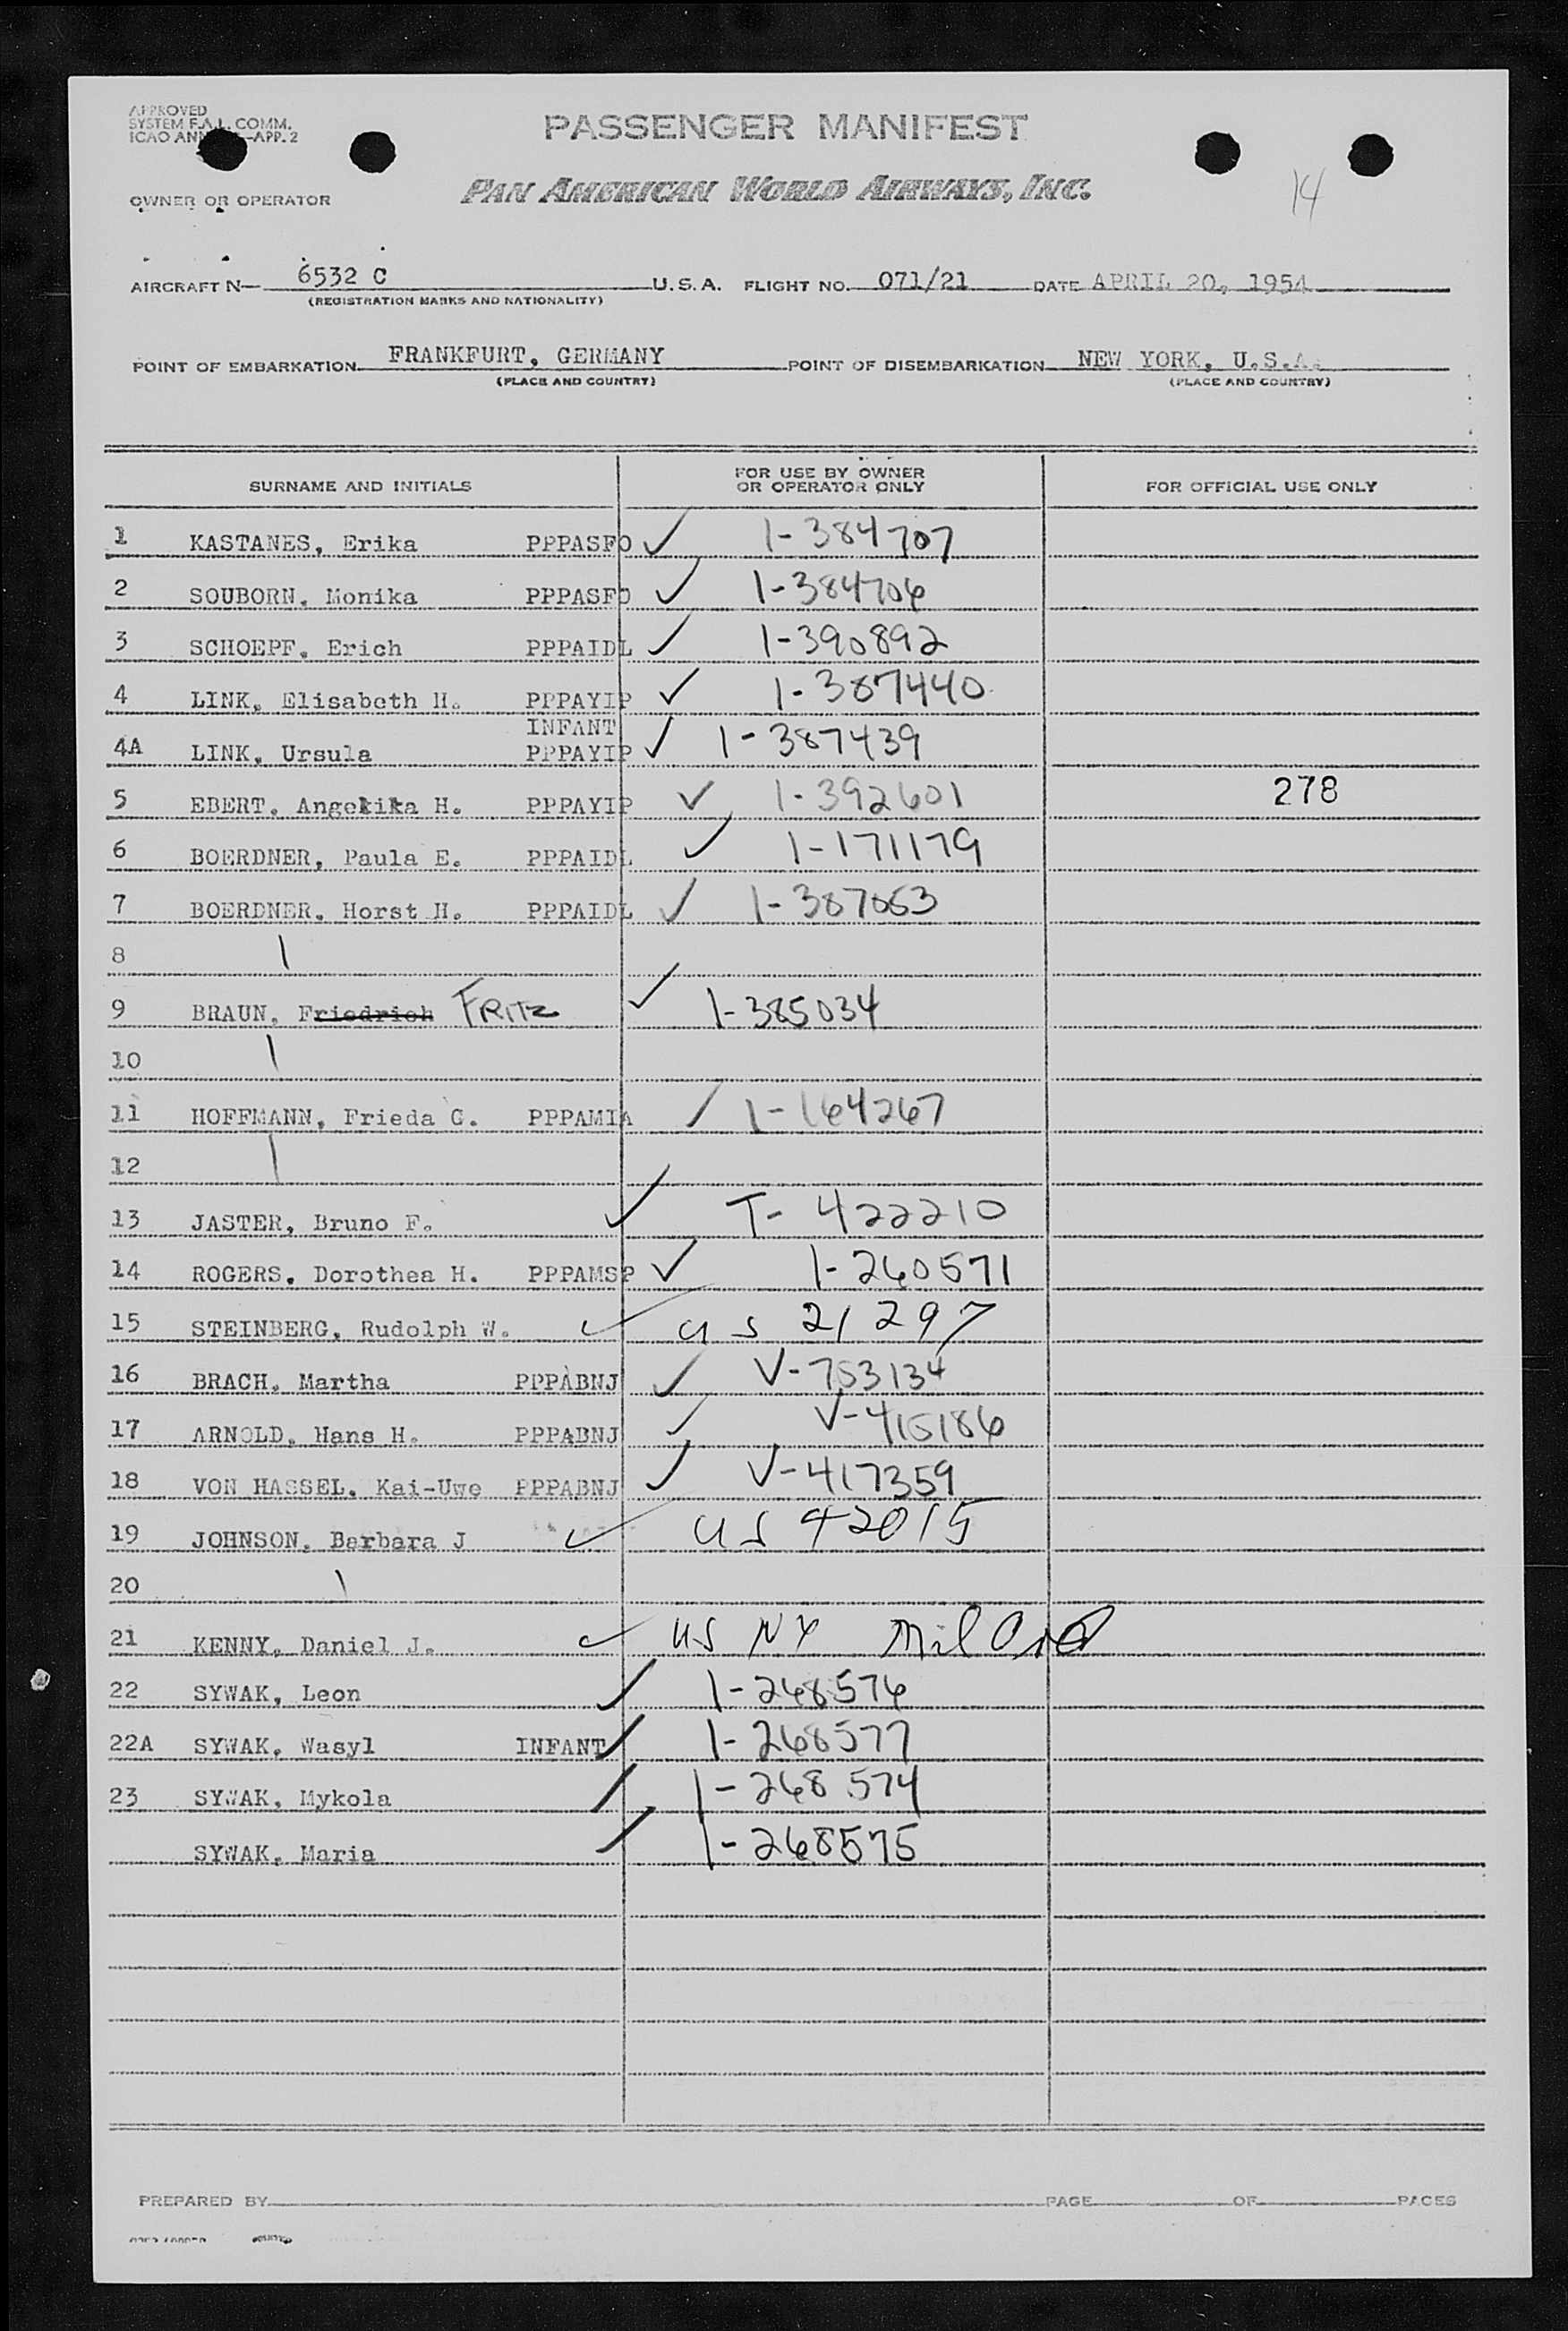 APPROVED
SYSTEM F.A.L. COMM.
ICAO ANN -APP. 2
PASSENGER MANIFEST
OWNER OR OPERATOR
PAN AMERICAN WORLD AIRWAYS, INC.
14
AIRCRAFT N— 6532 C U.S.A. FLIGHT NO. 071/21 DATE APRIL 20, 1954
(REGISTRATION MARKS AND NATIONALITY)
POINT OF EMBARKATION FRANKFURT, GERMANY POINT OF DISEMBARKATION NEW YORK, U.S.A.
(PLACE AND COUNTRY) (PLACE AND COUNTRY)
SURNAME AND INITIALS FOR USE BY OWNER OR OPERATOR ONLY FOR OFFICIAL USE ONLY
1 KASTANES, Erika PPPASFO ✓ 1-384707
2 SOUBORN, Monika PPPASFO ✓ 1-384706
3 SCHOEPF, Erich PPPAIDL ✓ 1-390892
4 LINK, Elisabeth H. PPPAYIP ✓ 1-387440
INFANT
4A LINK, Ursula PPPAYIP ✓ 1-387439
5 EBERT, Angekika H. PPPAYIP ✓ 1-392601 278
6 BOERDNER, Paula E. PPPAIDL ✓ 1-171179
7 BOERDNER, Horst H. PPPAIDL ✓ 1-387053
8
9 BRAUN, Friedrich FRITZ ✓ 1-385034
10
11 HOFFMANN, Frieda G. PPPAMIA ✓ 1-164267
12
13 JASTER, Bruno F. ✓ T-422210
14 ROGERS, Dorothea H. PPPAMSP ✓ 1-260571
15 STEINBERG, Rudolph W. ✓ US 21297
16 BRACH, Martha PPPABNJ ✓ V-753134
17 ARNOLD, Hans H. PPPABNJ ✓ V-415186
18 VON HASSEL, Kai-Uwe PPPABNJ ✓ V-417359
19 JOHNSON, Barbara J ✓ US 42015
20
21 KENNY, Daniel J. ✓ US NY Mil Ord
22 SYWAK, Leon ✓ 1-268576
22A SYWAK, Wasyl INFANT ✓ 1-268577
23 SYWAK, Mykola ✓ 1-268574
SYWAK, Maria ✓ 1-268575
PREPARED BY PAGE OF PAGES